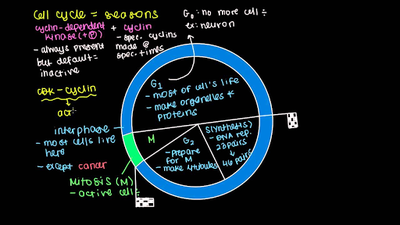 Cell cycle = seasons
cyclin-dependent + cyclin
kinase (+Ⓟ)
- always present
but default =
inactive
- spec. cyclins
made @
spec. times
G₀: no more cell ÷
ex: neuron
cdk - cyclin
↓
act
G₁
- most of cell's life
- make organelles &
proteins
interphase
- most cells live
here
- except cancer
M
G₂
- prepare
for M
- make
S(ynthesis)
- DNA rep.
23 pairs
↓
46 pairs
Mitosis (M)
- active cell ÷